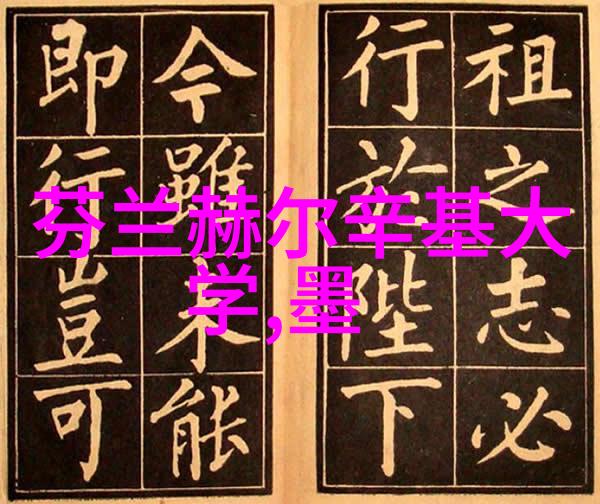 祖之志必
行於陛下
今雖未能
即行豈可
芬兰赫尔辛基大
学,墨